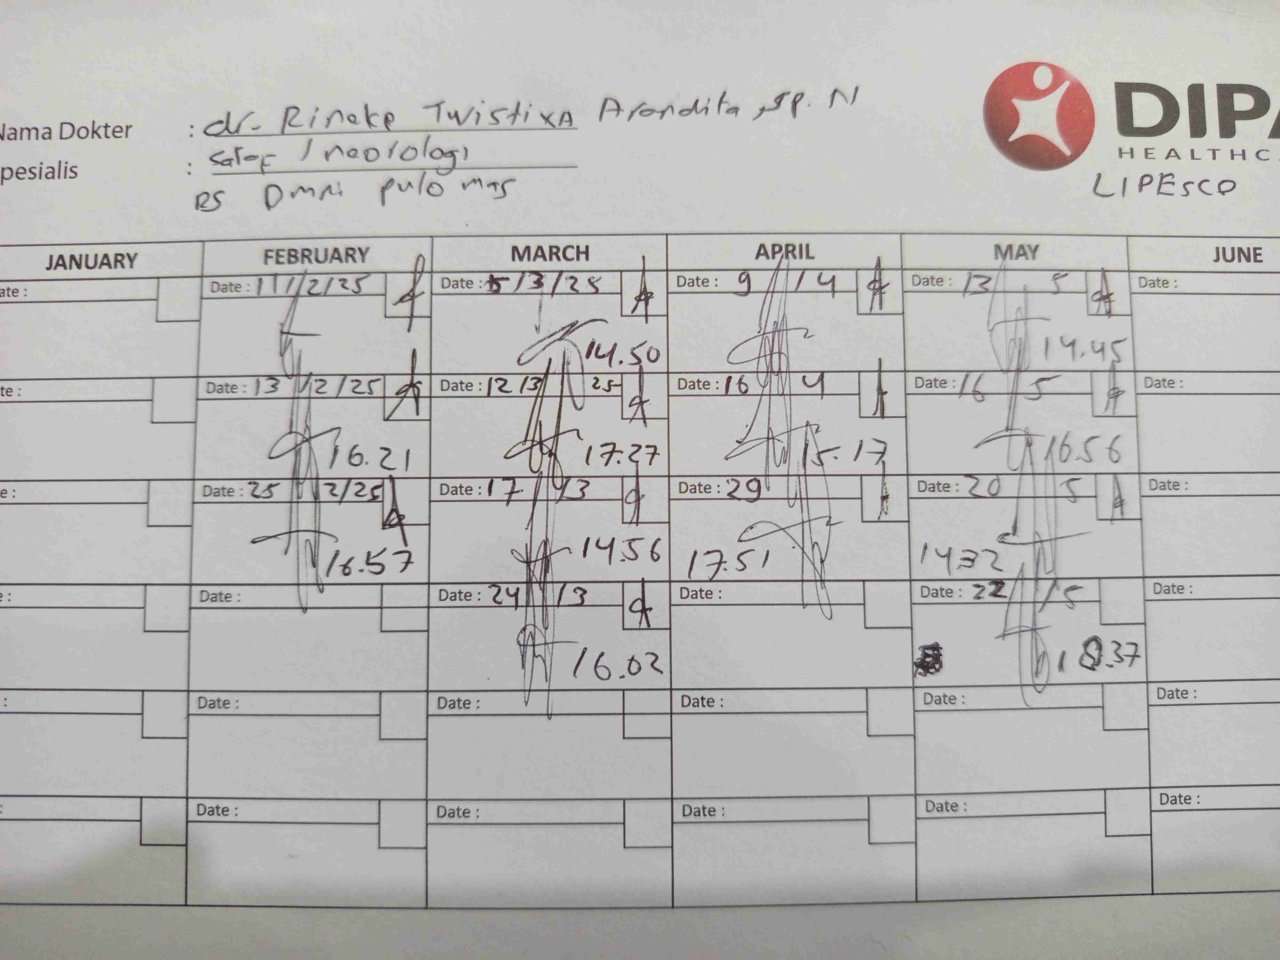 Nama Dokter : dr. Rineke Twistixa Arandita, Sp. N
Spesialis : Saraf / neorologi
RS Omni pulo mas
DIPA
HEALTHC
LIPESCO
JANUARY FEBRUARY MARCH APRIL MAY JUNE
ate : Date : 11/2/25 Date : 5/3/25 Date : 9/4 Date : 13 5 Date :
14.50 14.45
te : Date : 13/2/25 Date : 12/3 25 Date : 16 4 Date : 16 5 Date :
16.21 17.27 15.17 16.56
e : Date : 25 2/25 Date : 17/3 Date : 29 Date : 20 5 Date :
16.57 14.56 17.51 1432
e : Date : Date : 24/3 Date : Date : 22/5 Date :
16.02 18.37
: Date : Date : Date : Date : Date :
: Date : Date : Date : Date : Date :